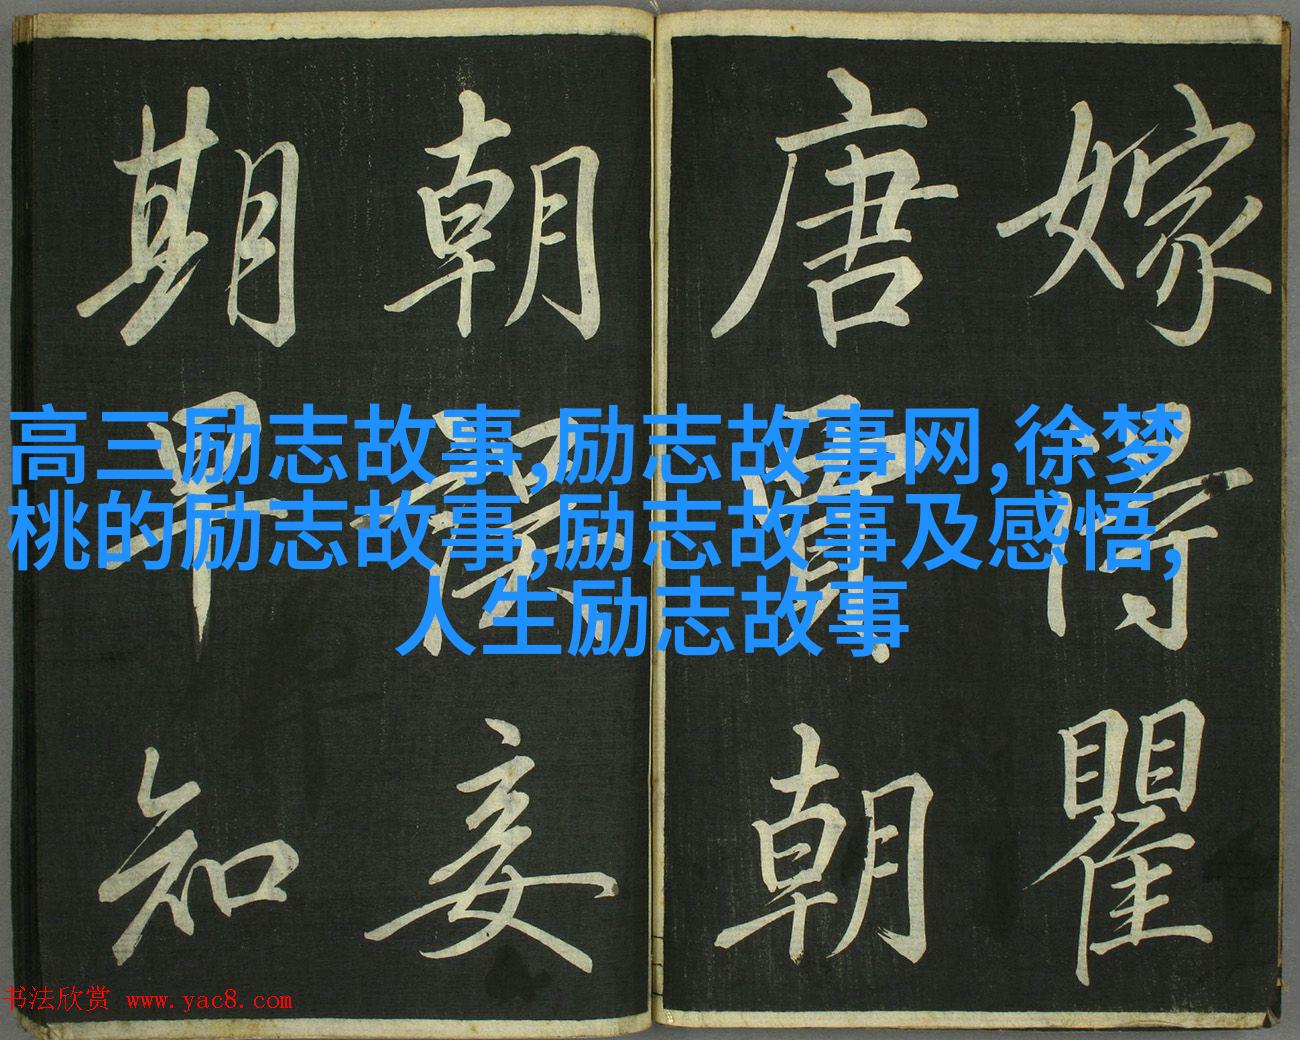 嫁得瞿
唐賈朝
朝妾
期早知
高三励志故事,励志故事网,徐梦
桃的励志故事,励志故事及感悟,
人生励志故事
书法欣赏 www.yac8.com